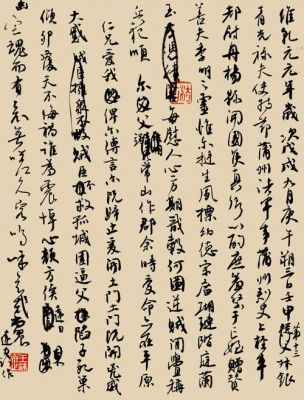 維乾元元年歲次戊戌九月庚午朔三日壬申第十三從父叔銀
青光祿夫使持節蒲州諸軍事蒲州刺史上輕車
都尉丹楊縣開國侯真卿以清酌庶羞祭于亡姪贈贊
善大夫季明之靈惟爾挺生夙標幼德宗廟瑚璉階庭蘭
玉每慰人心方期戩穀何圖逆賊閒釁稱
兵犯順爾父竭誠常山作郡余時受命亦在平原
仁兄愛我俾爾傳言爾既歸止爰開土門土門既開凶威
大蹙賊臣不救孤城圍逼父陷子死巢
傾卵覆天不悔禍誰為震悼心顏方俟遠日
魂而有知無嗟久客嗚呼哀哉尚饗